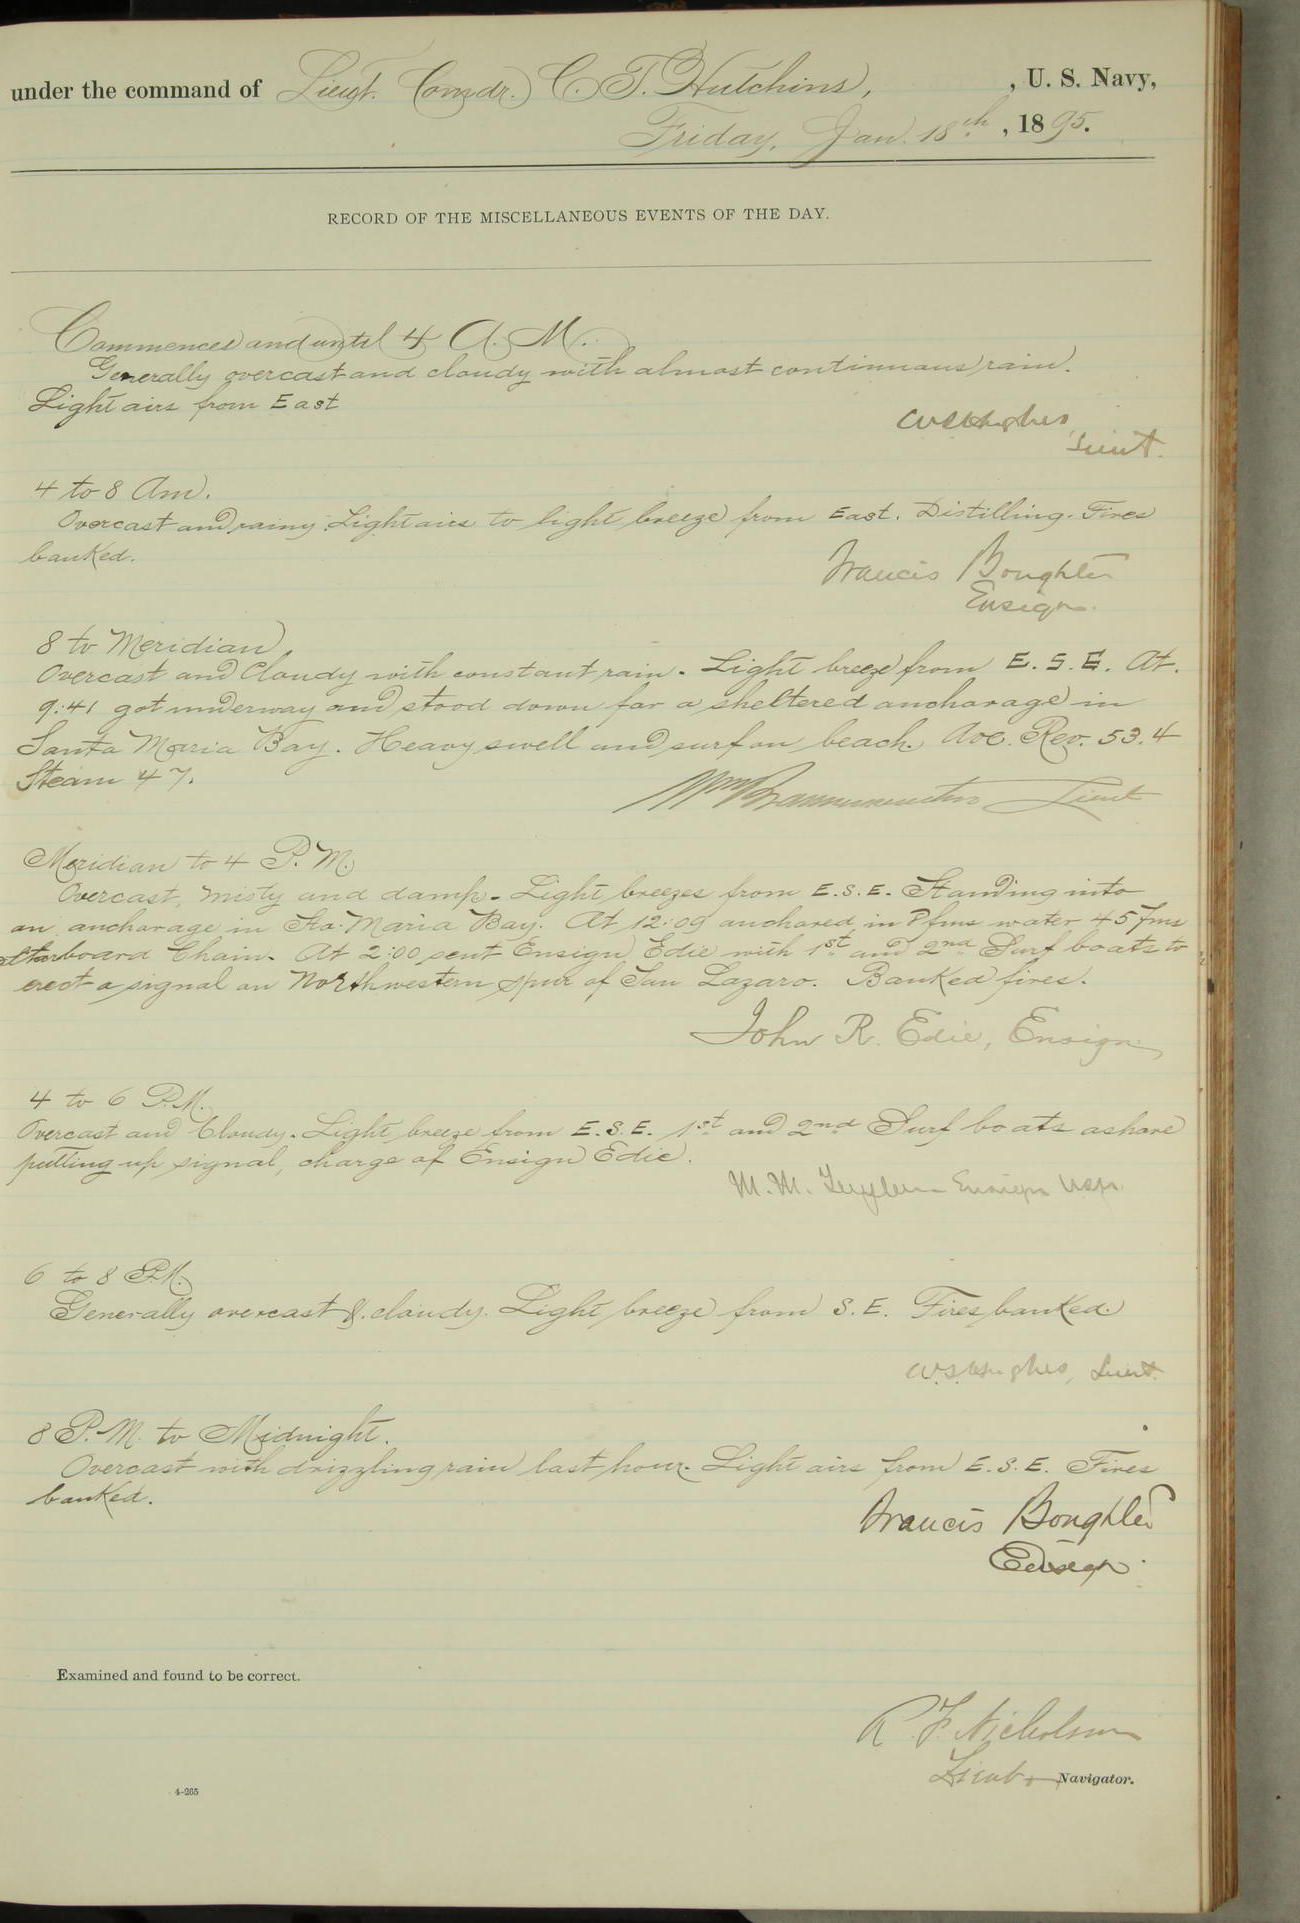 under the command of Lieut. Comdr. C. T. Hutchins, , U. S. Navy,
Friday, Jan. 18th, 1895.
RECORD OF THE MISCELLANEOUS EVENTS OF THE DAY.
Commences and until 4 A. M.
Generally overcast and cloudy with almost continuous rain.
Light airs from East
W.S. Hughes,
Lieut.
4 to 8 Am.
Overcast and rainy. Light airs to light breeze from East. Distilling. Fires
banked.
Francis Boughter
Ensign.
8 to Meridian
Overcast and Cloudy with constant rain. Light breeze from E. S. E. At
9:41 got underway and stood down for a sheltered anchorage in
Santa Maria Bay. Heavy swell and surf on beach. Ave. Rev. 53.4
Steam 47.
Wm Braunersreuther Lieut
Meridian to 4 P. M.
Overcast, misty and damp. Light breezes from E.S.E. Standing into
an anchorage in Sta. Maria Bay. At 12:09 anchored in fms water 45 fms
starboard Chain. At 2:00 sent Ensign Edie with 1st and 2nd Surf boats to
erect a signal on Northwestern spur of San Lazaro. Banked fires.
John R. Edie, Ensign
4 to 6 P.M.
Overcast and Cloudy. Light breeze from E.S.E. 1st and 2nd Surf boats ashore
putting up signal, charge of Ensign Edie.
M. M. Ensign USN.
6 to 8 P.M.
Generally overcast & cloudy. Light breeze from S. E. Fires banked.
W.S. Hughes, Lieut.
8 P.M. to Midnight.
Overcast with drizzling rain last hour. Light airs from E.S.E. Fires
banked.
Francis Boughter
Ensign.
Examined and found to be correct.
R. F. Nicholson
Lieut., Navigator.
4-265